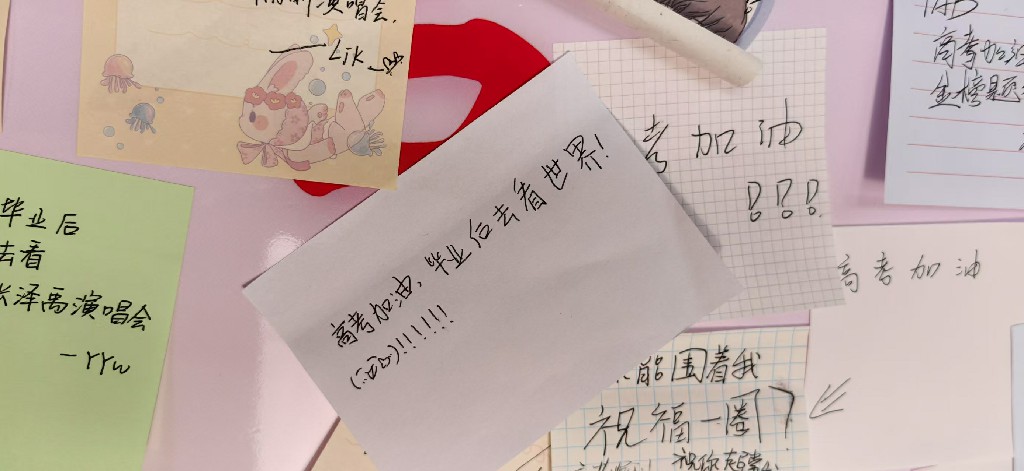 演唱会.
Lik
毕业后
去看
张泽禹演唱会
-YYw
高考加油,毕业后去看世界!
!!!!!!!
考加油
!!!
高考加油
金榜题
高考加油
能围着我
祝福一圈?